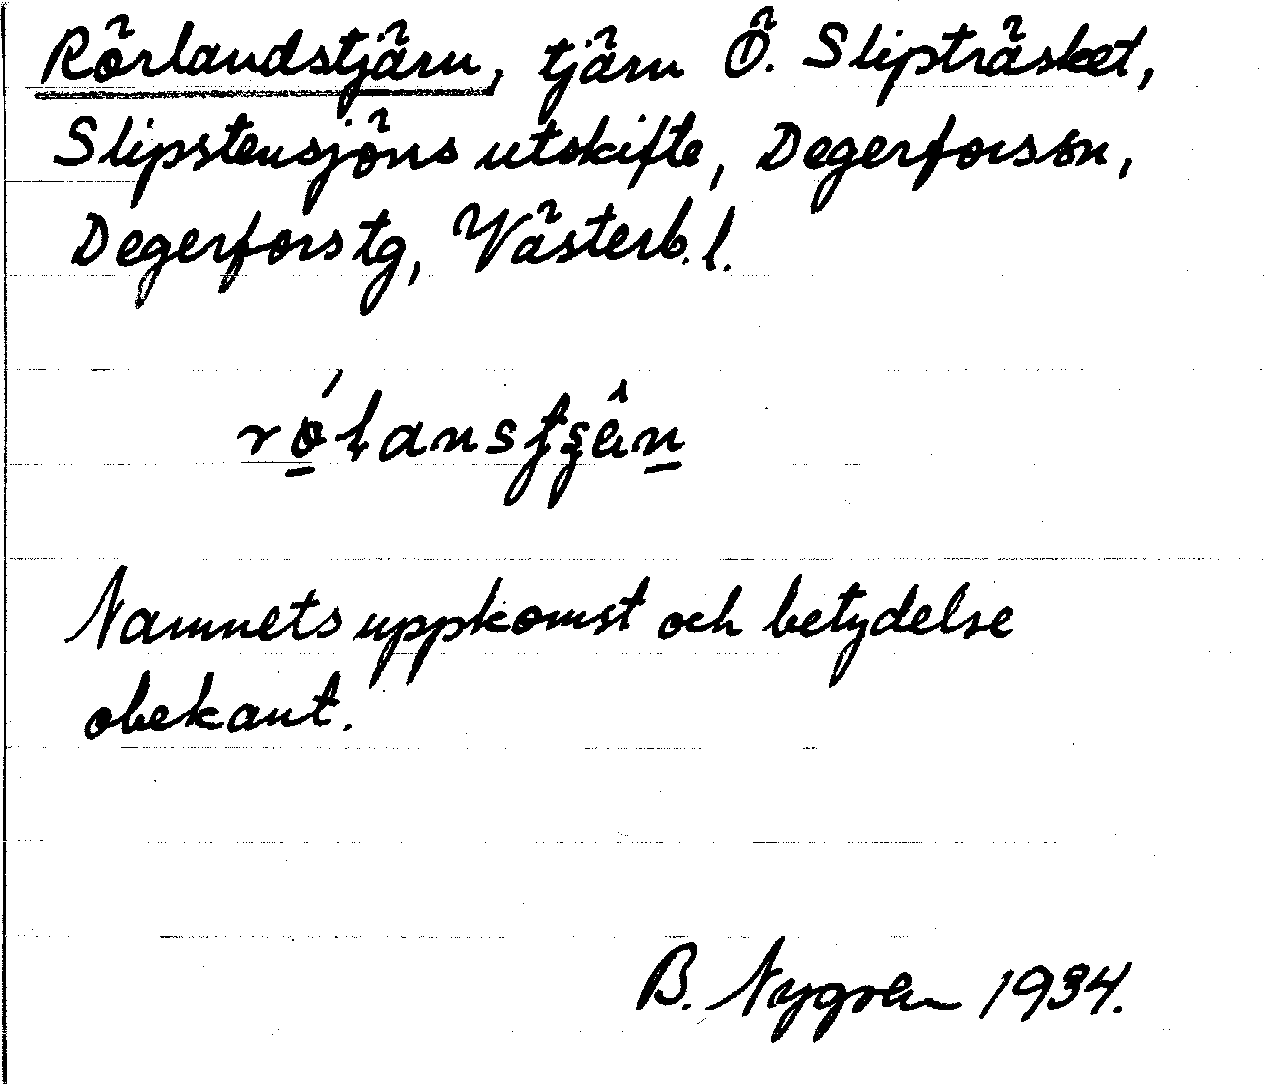 Rörlandstjärn, tjärn Ö. Slipträsket,
Slipstensjöns utskifte, Degerforssn,
Degerforstg, Västerb.l.
Namnets uppkomst och betydelse
obekant.
B. Nygren 1934.